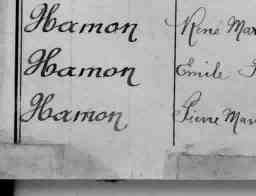 Hamon René Mar
Hamon Emile
Hamon Pierre Mari